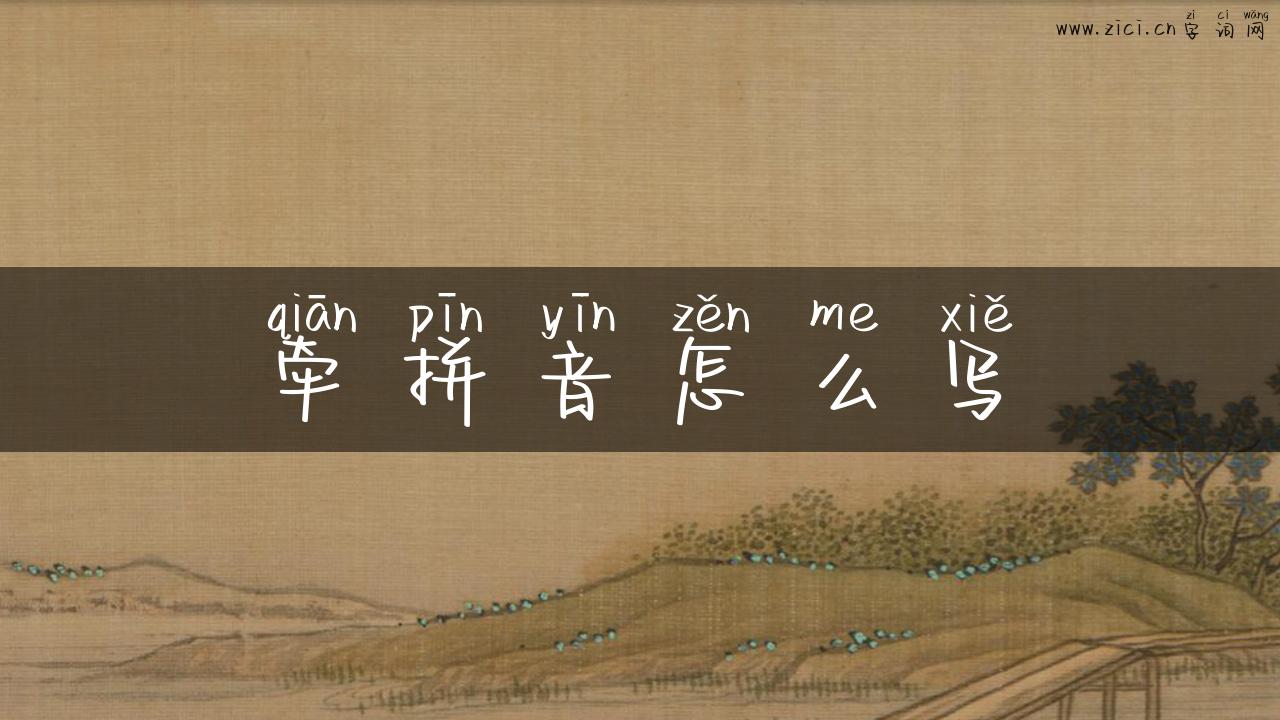 zì cí wǎng
www.zici.cn字词网
qiān pīn yīn zěn me xiě
牵拼音怎么写